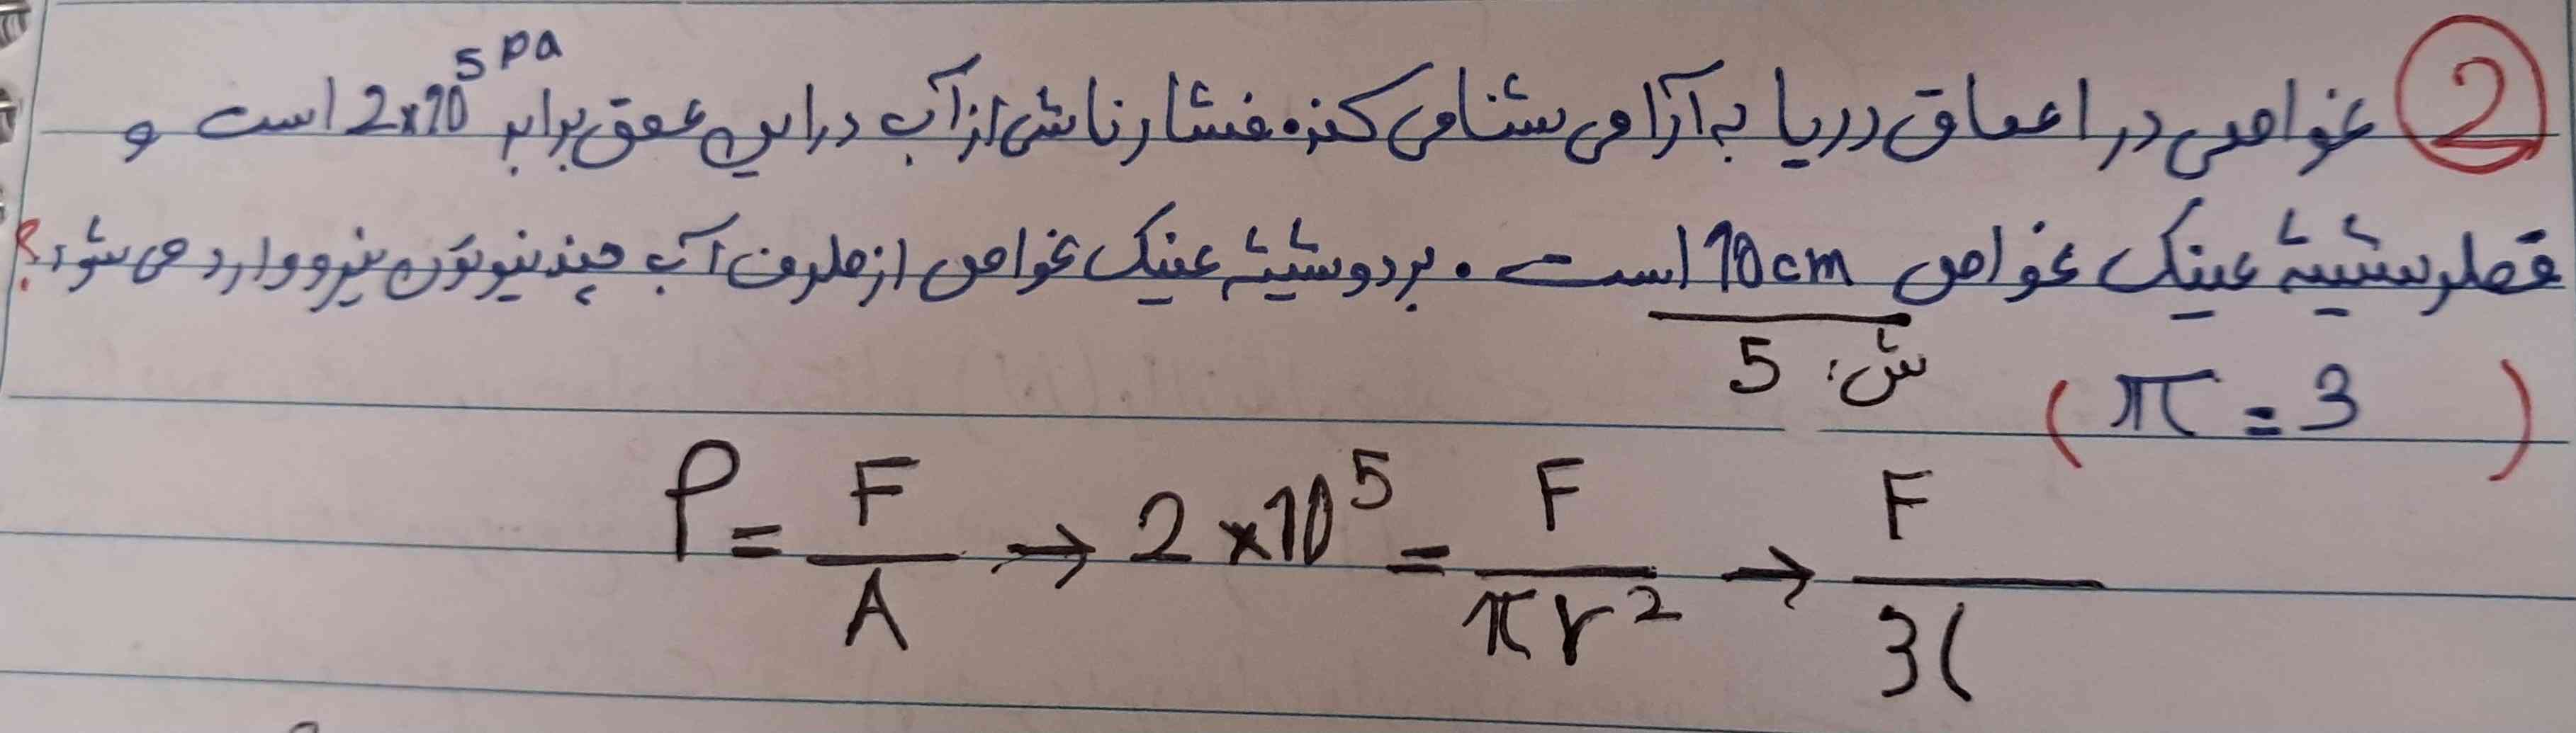 ② غواصی در اعماق دریا به آرامی شنا می کند. فشار ناشی از آب در این عمق برابر 2×10⁵ pa است و
قطر شیشهٔ عینک غواص 10cm است. بر دو شیشه عینک غواص از طرف آب چند نیوتون نیرو وارد می شود؟
ش: 5
(π = 3)
P = F/A → 2×10⁵ = F/πr² → F/3(